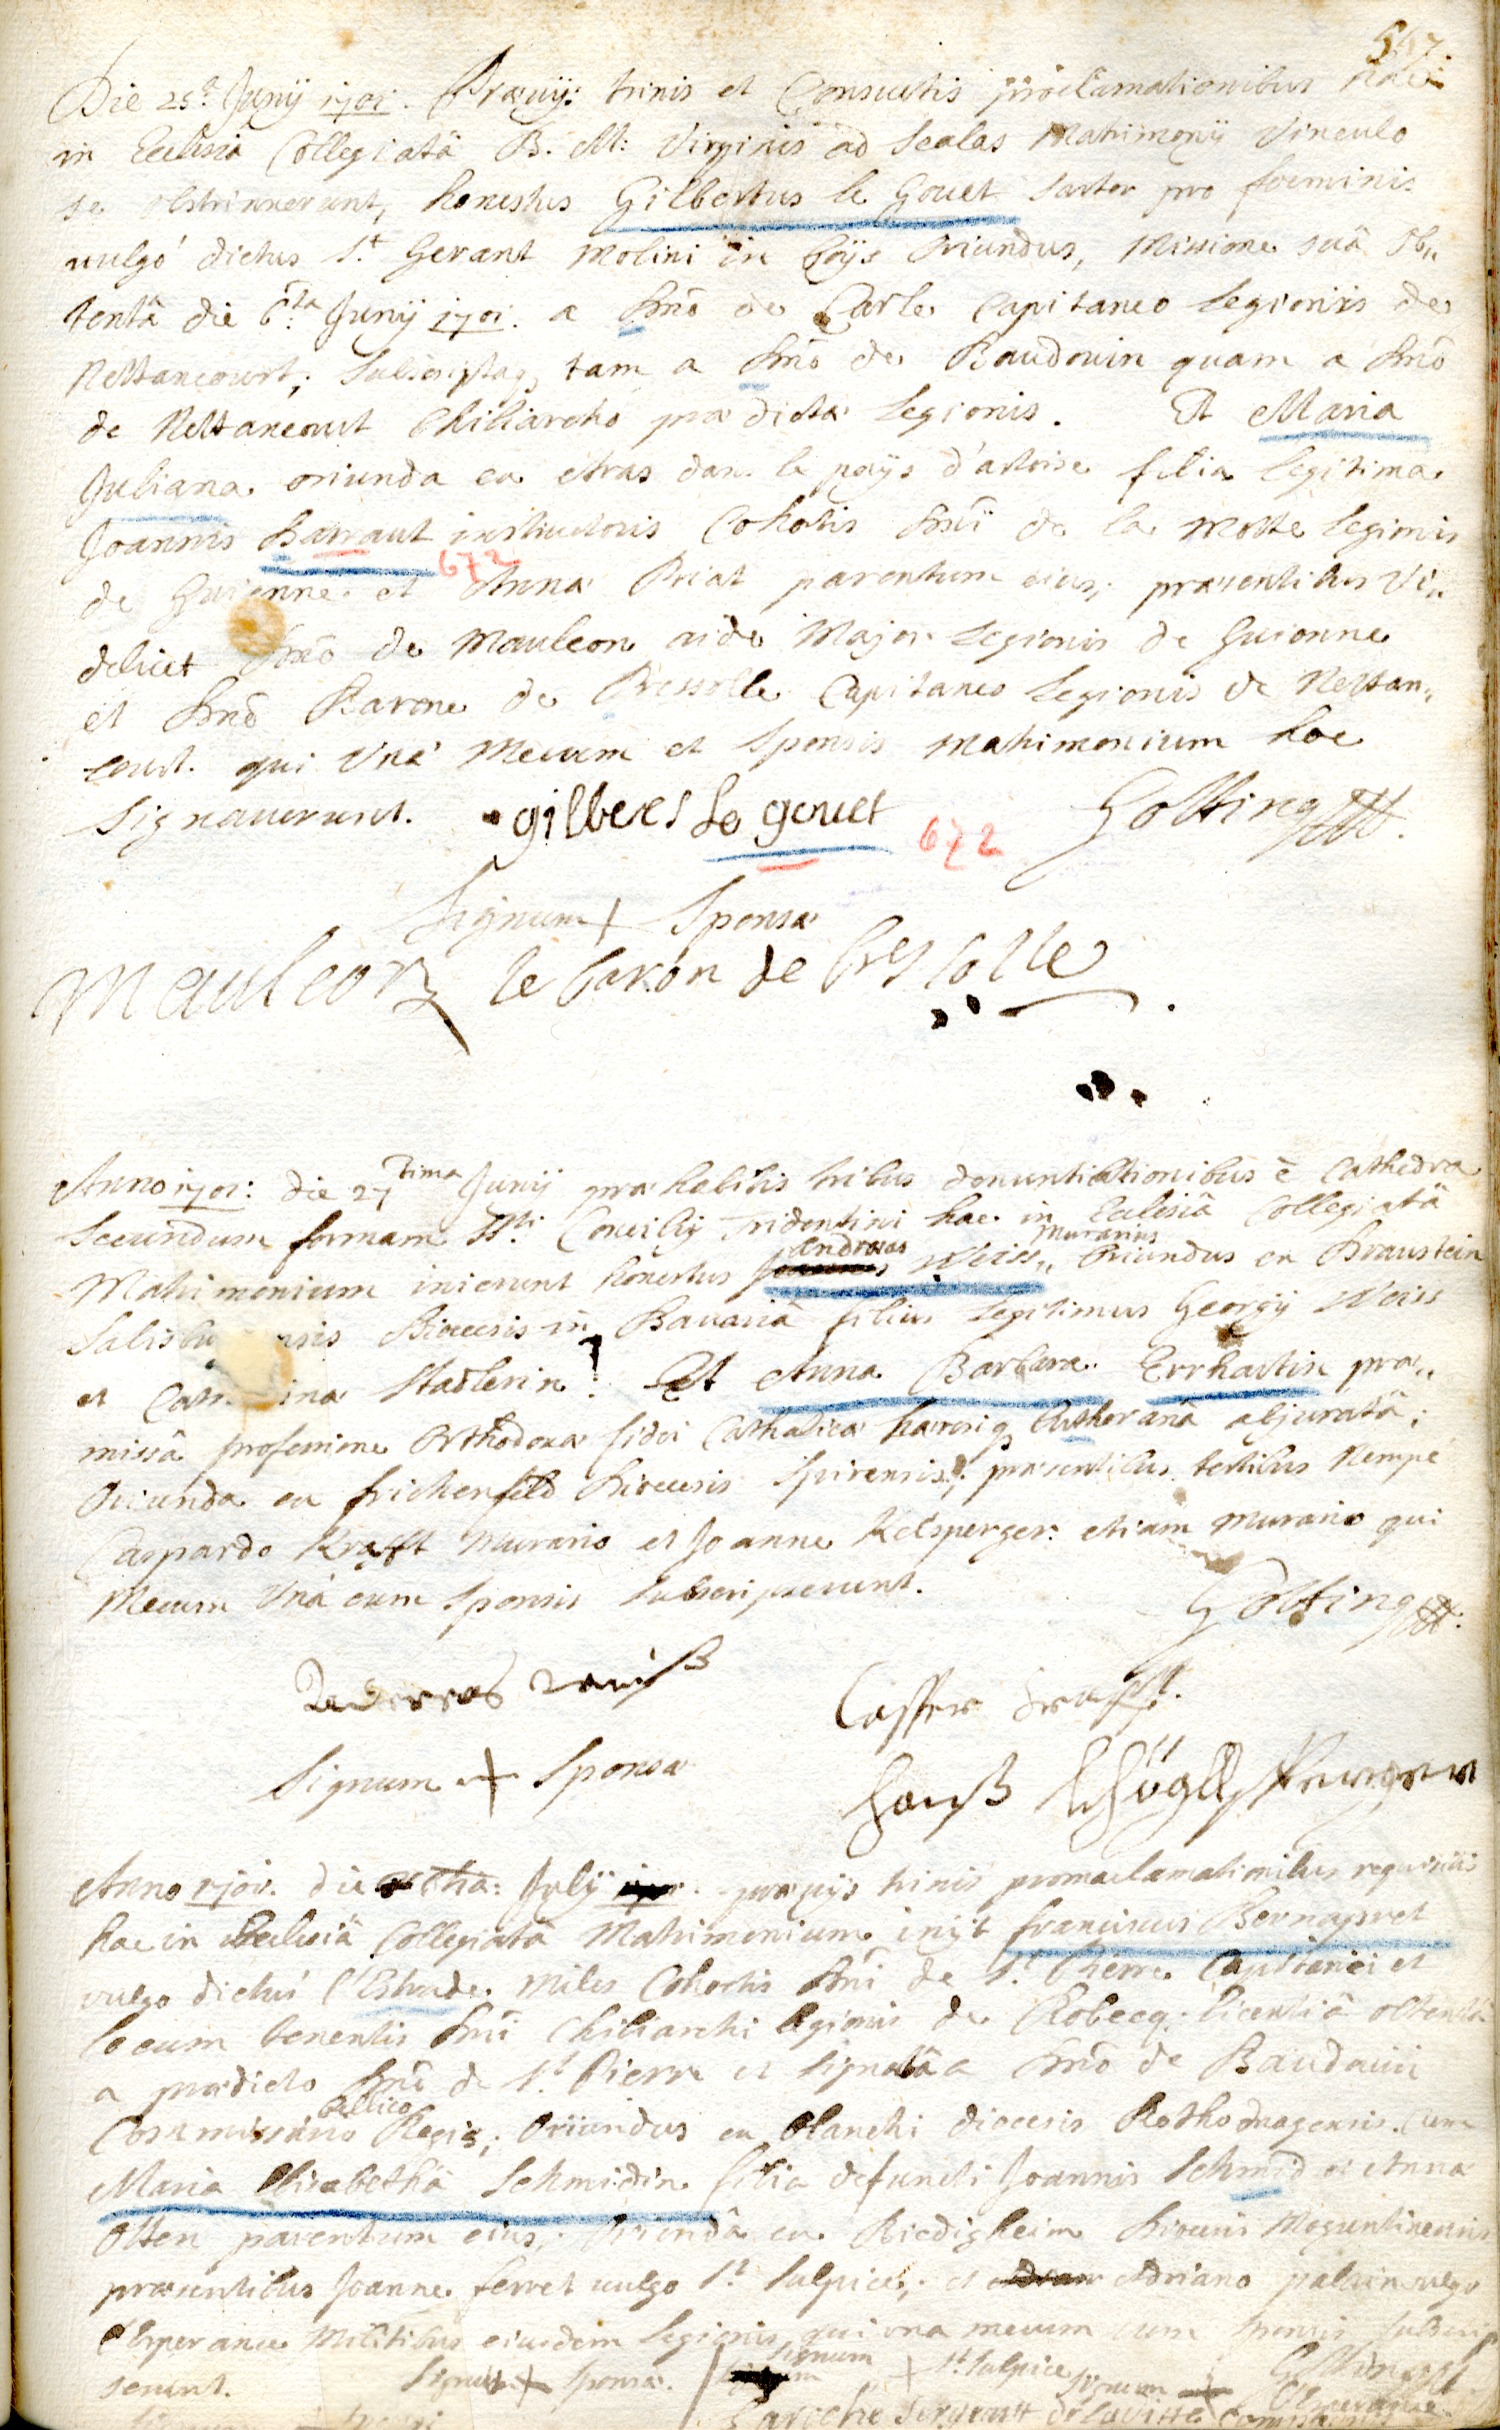 557.
Die 25ª Junÿ 1701. Præviis trinis et Consuetis proclamationibus hac
in Ecclesiâ Collegiatâ B. M: Virginis ad Scalas Matrimonÿ Vinculo
se obstrinxerunt, honestus Gilbertus le Gouet Sartor pro foeminis
vulgó dictus S.t Gerant Molini in Oriundus, Missione suâ ob„
tentâ die 6ta Junÿ 1701. a Dnõ de Carle Capitaneo Legionis de
Nettancourt; Subscriptaq, tam a Dnõ de Baudouin quam a Dnõ
de Nettancourt Chiliarcho prædictæ Legionis. Et Maria
Juliana oriunda ex Aras dan le paÿs d'artoise filia Legitima
Joannis Barraut instructoris Cohortis Dnĩ de la Motte Legionis
672
de Guienne et Anna Priat parentum eius, præsentibus Vi„
delicet Dnõ de Mauleon aide Major Legionis de Guienne
et Dnõ Barone de Bressolle Capitaneo Legionis de Nettan„
court. qui Unà Mecum et Sponsis Matrimonium hoc
Signaverunt. gilbers le gouet Gölting
672
Signum + Sponsæ
Mauleon le baron de bressolle

Anno 1701: die 27 tima Junÿ præhabitis tribus denuntiationibus è Cathedra
Secundum formam Ssti Concilÿ Tridentini hac in Ecclesiâ Collegiatâ
Matrimonium inierunt honestus Andreas Weiss„ Murarius Oriundus ex Braustein
Salisbu nsis Dioecesis in Bavariâ filius Legitimus Georgÿ Weiss
et Cat ina Stadlerin! Et Anna Barbara Errhartin præ„
missâ professione Orthodoxæ fidei Catholicæ hæresiq Lutheranâ abjuratâ;
Oriunda ex frickenfeld Dioecesis Spirensis; præsentibus testibus Nempe
Caspardo Krafft Murario et Joanne Kelsperger: etiam Murario qui
Mecum Unà cum Sponsis Subscripserunt.
Gölting
Anderas weiß
Casper Krafft.
Signum + Sponsæ
Hanß

Anno 1701. die Julÿ prævÿs trinis promaclamationibus requisitis
hac in Ecclesiâ Collegiatâ Matrimonium inÿt franciscus Bernapret
vulgo dictus l'Estrade Miles Cohortis Dnĩ de S.t Pierre Capitanei et
locum tenentis Dnĩ Chiliarchi legionis de Robecq; licentiâ obtentâ
a prædicto Dnõ de S.t Pierre et Signatâ a Dnõ de Baudouin
Commissario Bellico Regis; Oriundus ex Blanchi diocesis Rothomagensis. Cum
Maria Elisabethâ Schmidin filia defuncti Joannis Schmid et Anna
Otten parentum eius; Oriundâ ex Riedigheim Dioecesis Moguntinensis
præsentibus Joanne ferret vulgo S.t Sulpice, et Adriano palain vulgo
l'Esperance Militibus eiusdem Legionis, qui una mecum cum Sponsis Subscrip
serunt. Signum + Sponsæ. Signum + St. Sulpice Signum + l'Esperance
Gölting
Laroche Sergeantt de